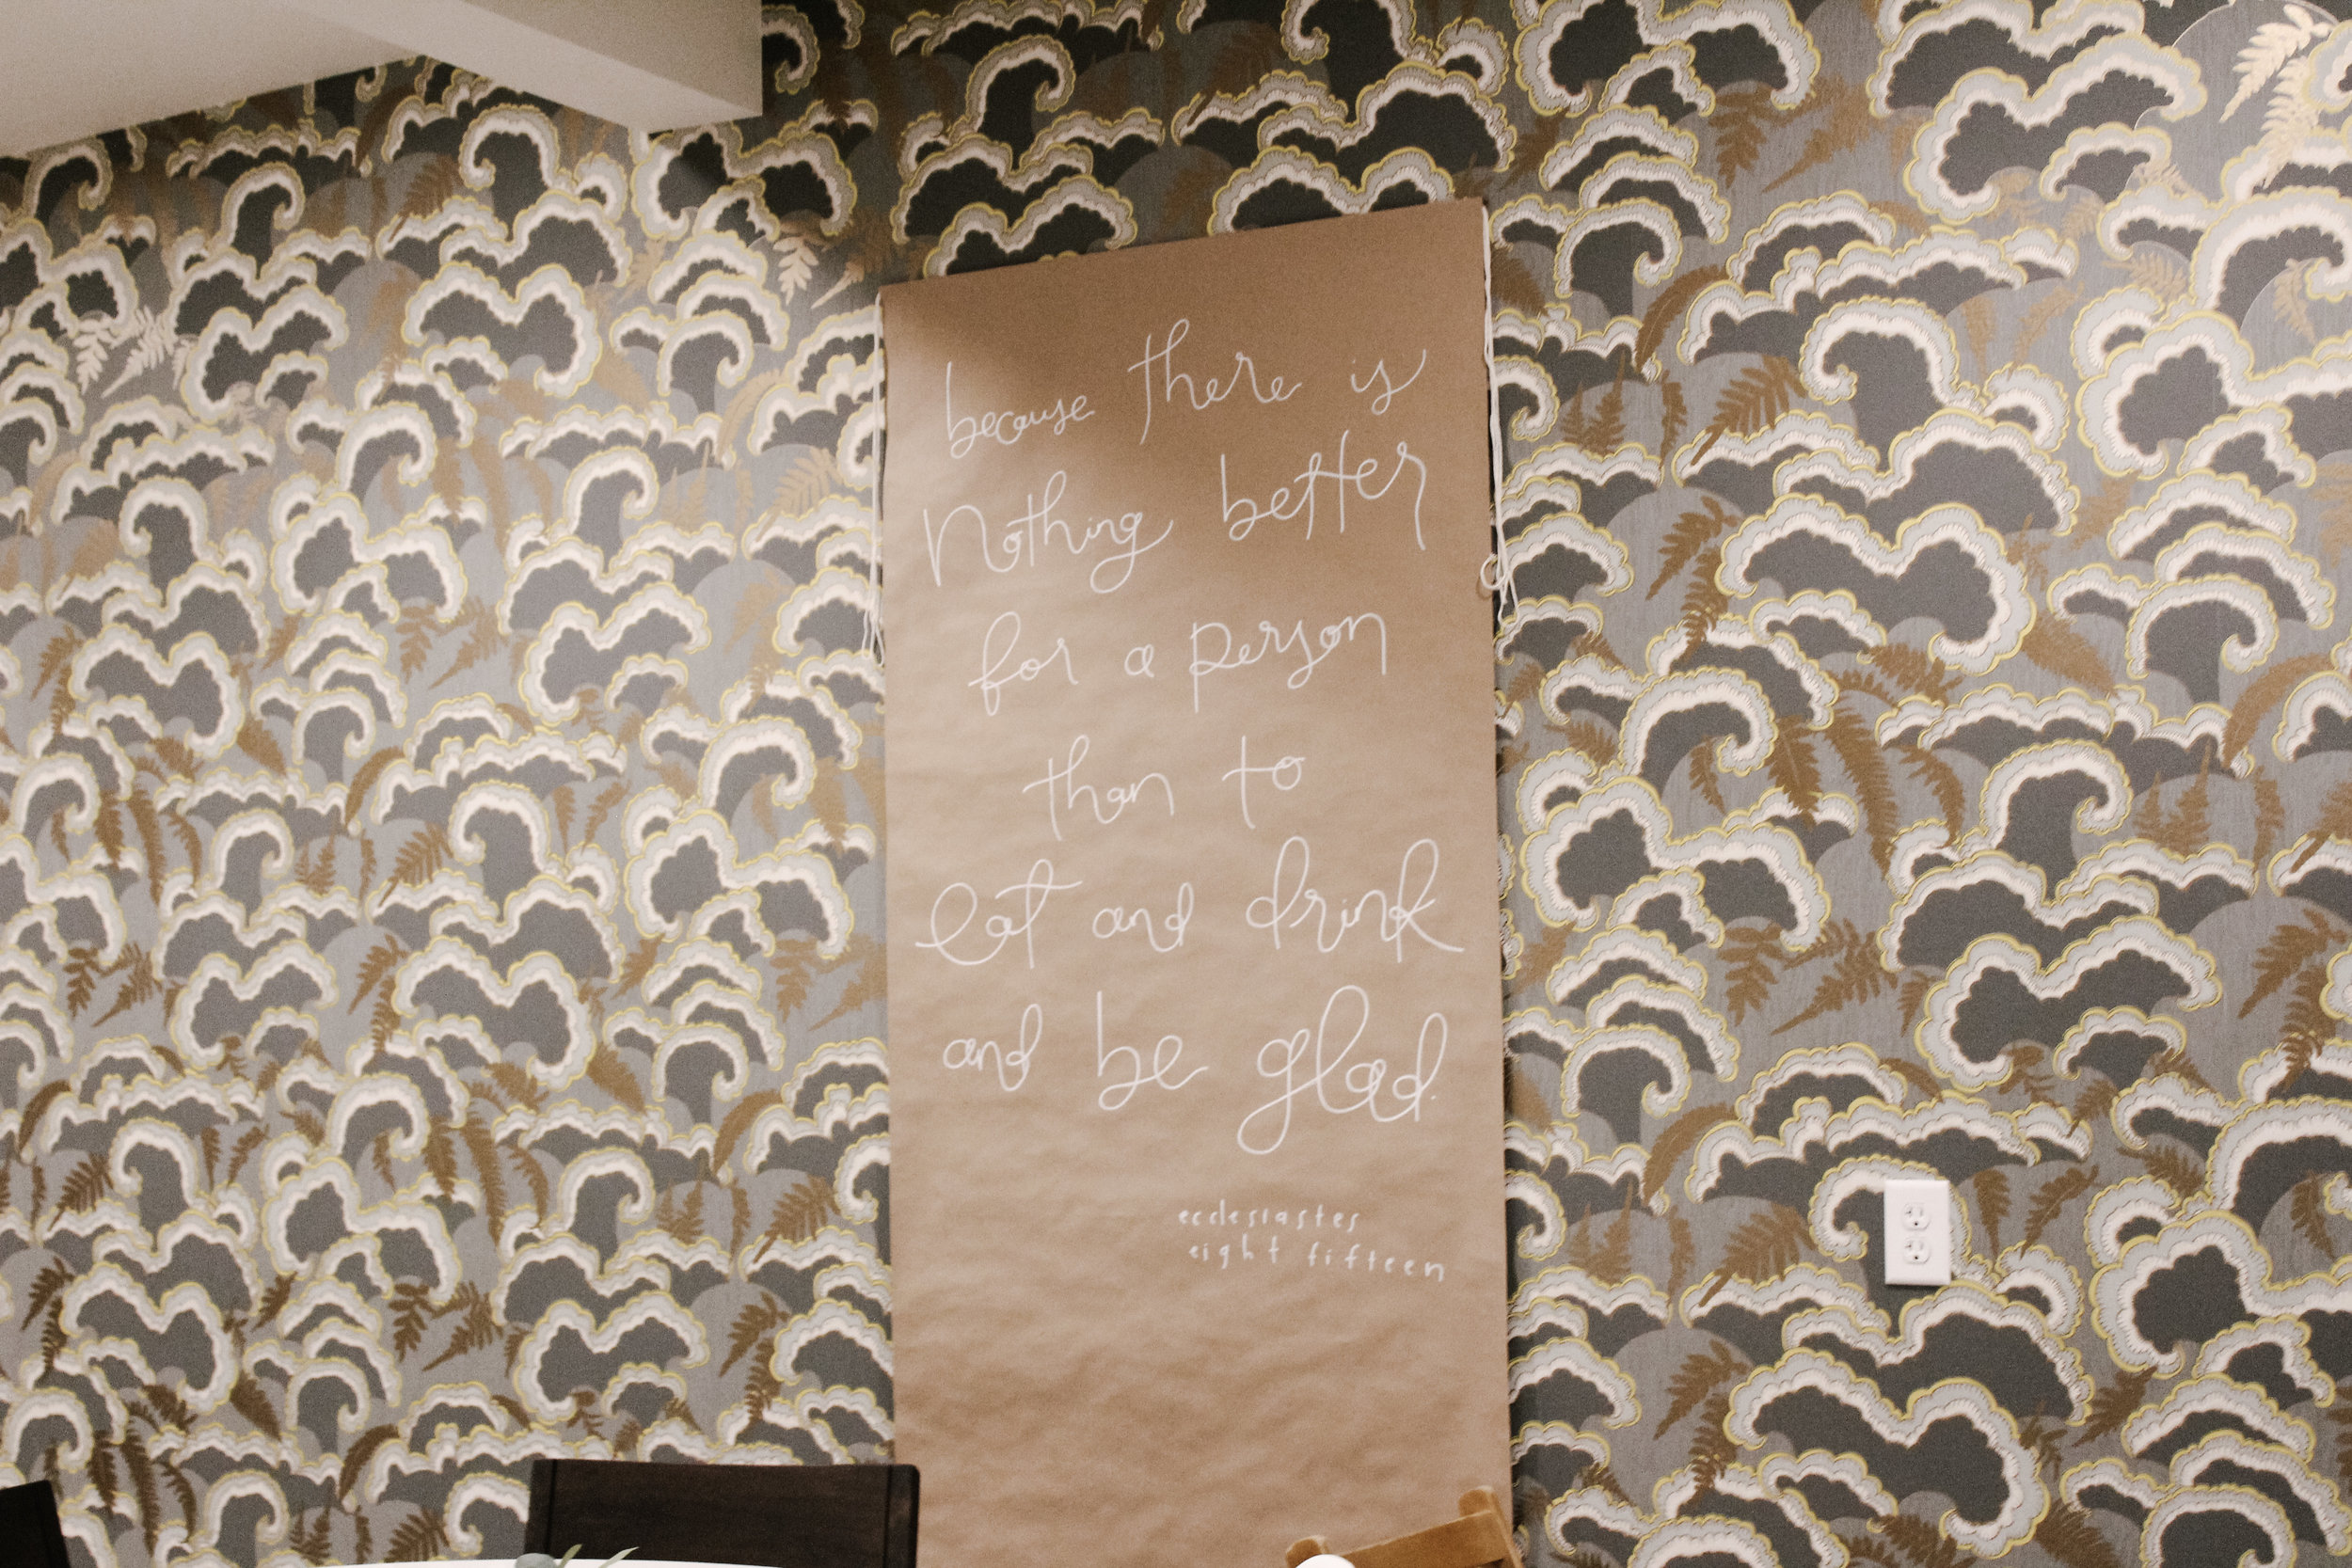 because there is
Nothing better
for a person
than to
eat and drink
and be glad.
ecclesiastes
eight fifteen